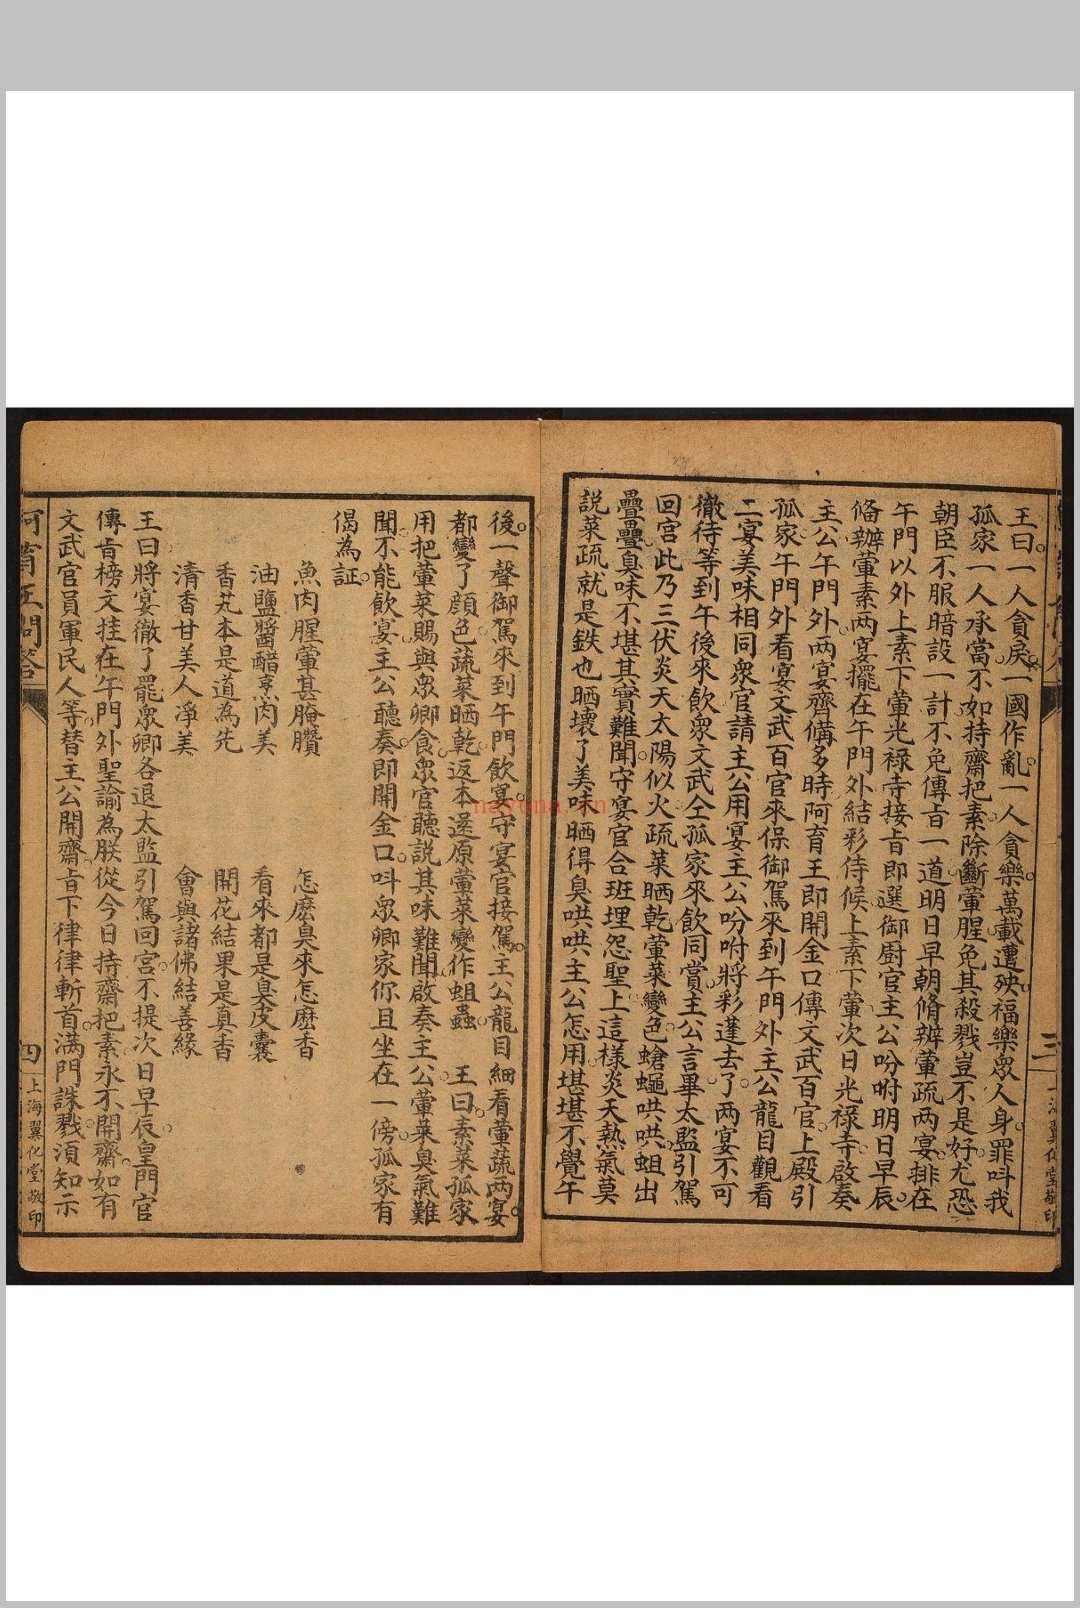 王曰一人貪戾一國作亂一人貪樂萬載遭殃福樂衆人身罪呌我
孤家一人承當不如持齋把素除斷葷腥免其殺戮豈不是好尤恐
朝臣不服暗設一計不免傳旨一道明日早朝脩辦葷蔬两宴排在
午門以外上素下葷光禄寺接旨即選御厨官主公吩咐明日早辰
俻辦葷素两宴擺在午門外結彩侍候上素下葷次日光禄寺啟奏
主公午門外两宴齊備多時阿育王即開金口傳文武百官上殿引
孤家午門外看宴文武百官來保御駕來到午門外主公龍目觀看
二宴美味相同衆官請主公用宴主公吩咐將彩蓬去了两宴不可
徹待等到午後來飲衆文武仝孤家來飲同賞主公言畢太監引駕
回宮此乃三伏炎天太陽似火疏菜晒乾葷菜變色螥蠅哄哄蛆出
疊疊臭味不堪其實難聞守宴官合班埋怨聖上這樣炎天熱氣莫
説菜疏就是鉄也晒壊了美味晒得臭哄哄主公怎用堪堪不覺午
三
後一聲御駕來到午門飲宴守宴官接駕主公龍目細看葷蔬两宴
都變了顔色蔬菜晒乾返本还原葷菜變作蛆蟲 王曰素菜孤家
用把葷菜賜與衆卿食衆官聽説其味難聞啟奏主公葷菜臭氣難
聞不能飲宴主公聽奏即開金口呌衆卿家你且坐在一傍孤家有
偈為証
魚肉腥葷甚腌臢 怎麽臭來怎麽香
油鹽醬醋烹肉美 看來都是臭皮囊
香芄本是道為先 開花結果是真香
清香甘美人凈美 會與諸佛結善緣
王曰將宴徹了罷衆卿各退太监引駕回宮不提次日早辰皇門官
傳旨榜文挂在午門外聖諭為朕從今日持齋把素永不開齋如有
文武官員軍民人等替主公開齋旨下律律斬首满門誅戮須知示
阿育王問答
四
上海翼化堂敬印
nayona.cn